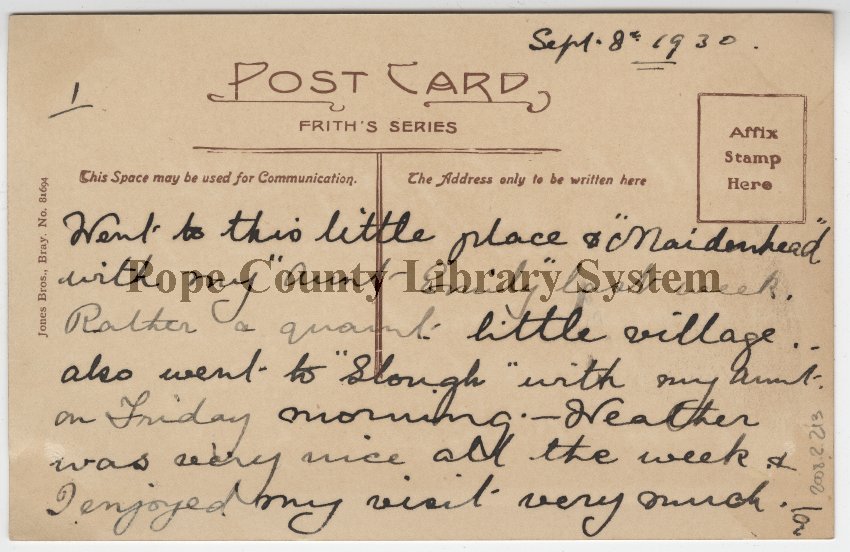 Sept. 8th 1930.
1
POST CARD
FRITH'S SERIES
Affix
Stamp
Here
This Space may be used for Communication.
The Address only to be written here
Jones Bros., Bray. No. 81694
Went to this little place & "Maidenhead"
with my "Aunt Emily" last week.
Pope County Library System
Rather a quaint little village..
also went to "Slough" with my Aunt.
on Friday morning. — Weather
was very nice all the week &
I enjoyed my visit very much.
2008.2.213